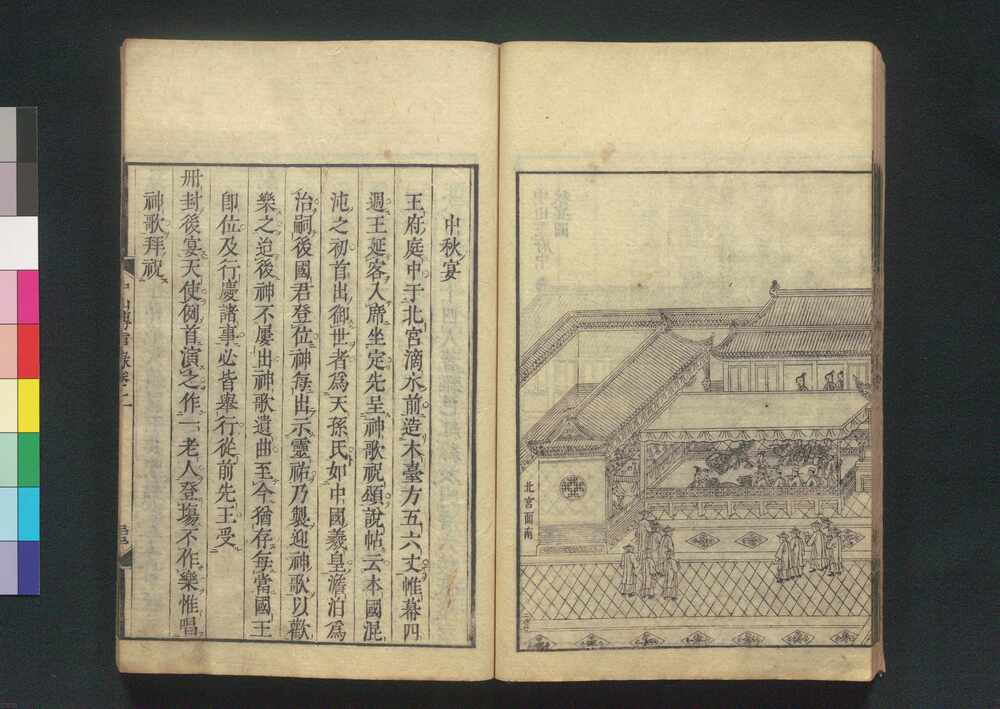 北宮面南
中秋宴
王府庭中于北宮滴水前造木臺方五六丈帷幕四
週王延客入席坐定先呈神歌祝頌說帖云本國混
沌之初首出御世者為天孫氏如中國羲皇澹泊為
治嗣後國君登位神每出示靈祐乃製迎神歌以歡
樂之迨後神不屢出神歌遺曲至今猶存每當國王
即位及行慶諸事必皆舉行從前先王受
冊封後宴天使例首演之作一老人登場不作樂惟唱
神歌拜祝
中山傳信錄卷二